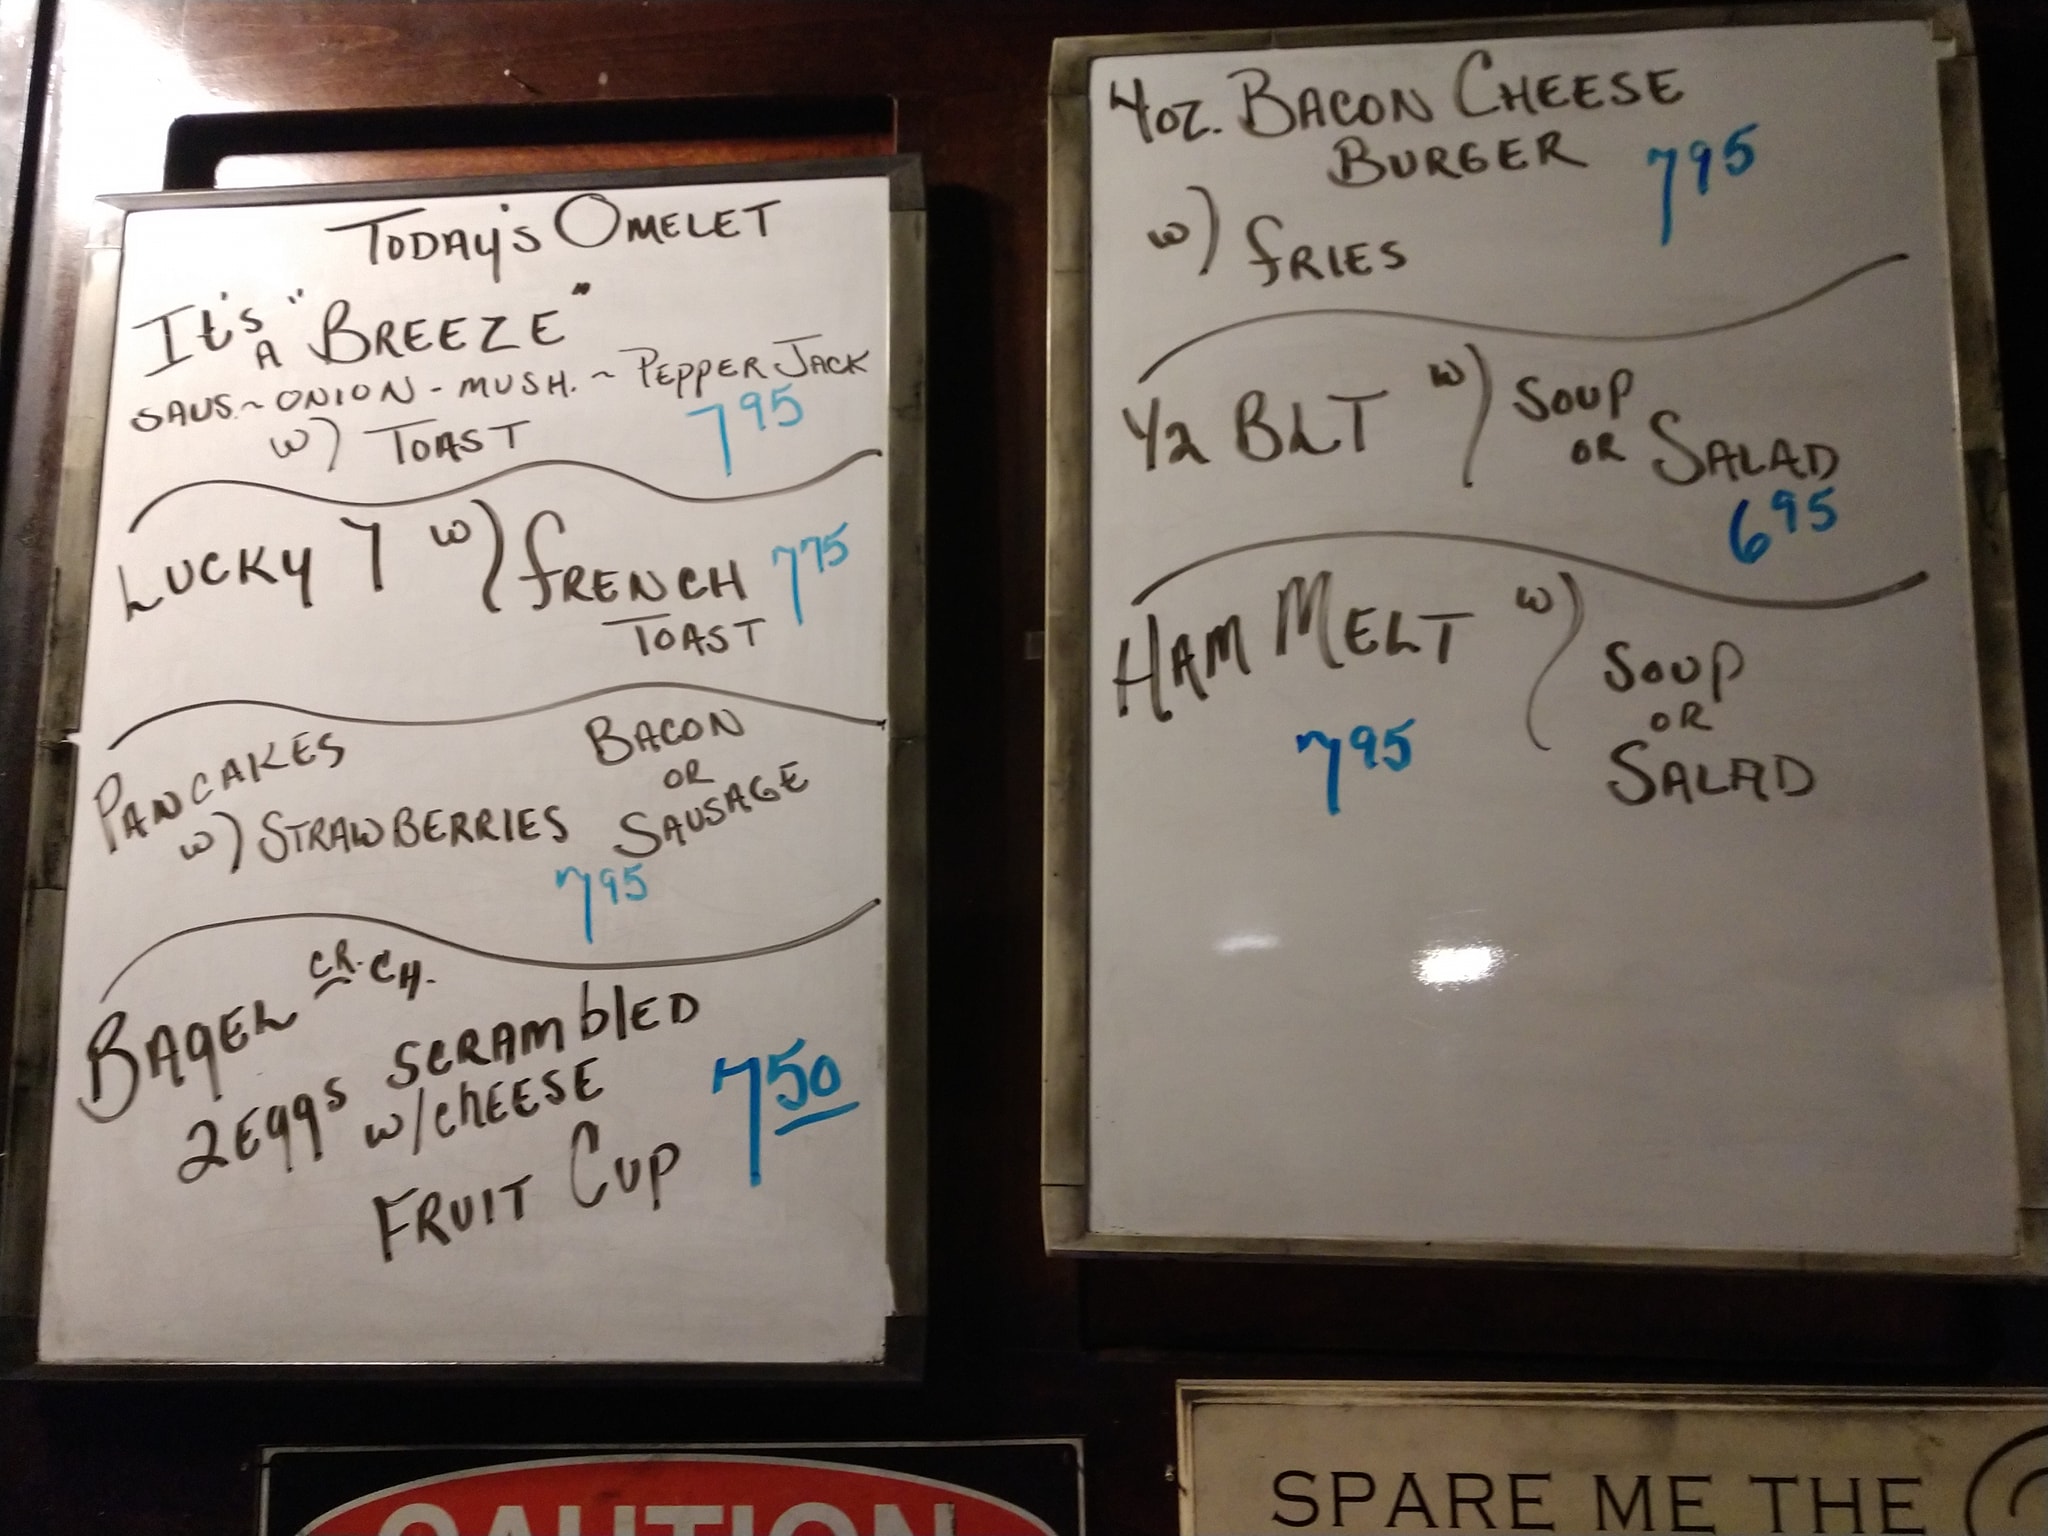 TODAY'S OMELET
It's A "BREEZE"
SAUS. ~ ONION - MUSH. ~ PEPPER JACK
w) TOAST 7 95
LUCKY 7 w) FRENCH TOAST 7 75
PANCAKES
w) STRAWBERRIES BACON OR SAUSAGE
7 95
BAGEL CR. CH.
2 EggS SCRAMBLED
w/CHEESE
FRUIT CUP 7 50
4oz. BACON CHEESE
BURGER 7 95
w) FRIES
1/2 BLT w) SOUP
OR SALAD
6 95
HAM MELT w) SOUP
OR
SALAD
7 95
CAUTION
SPARE ME THE